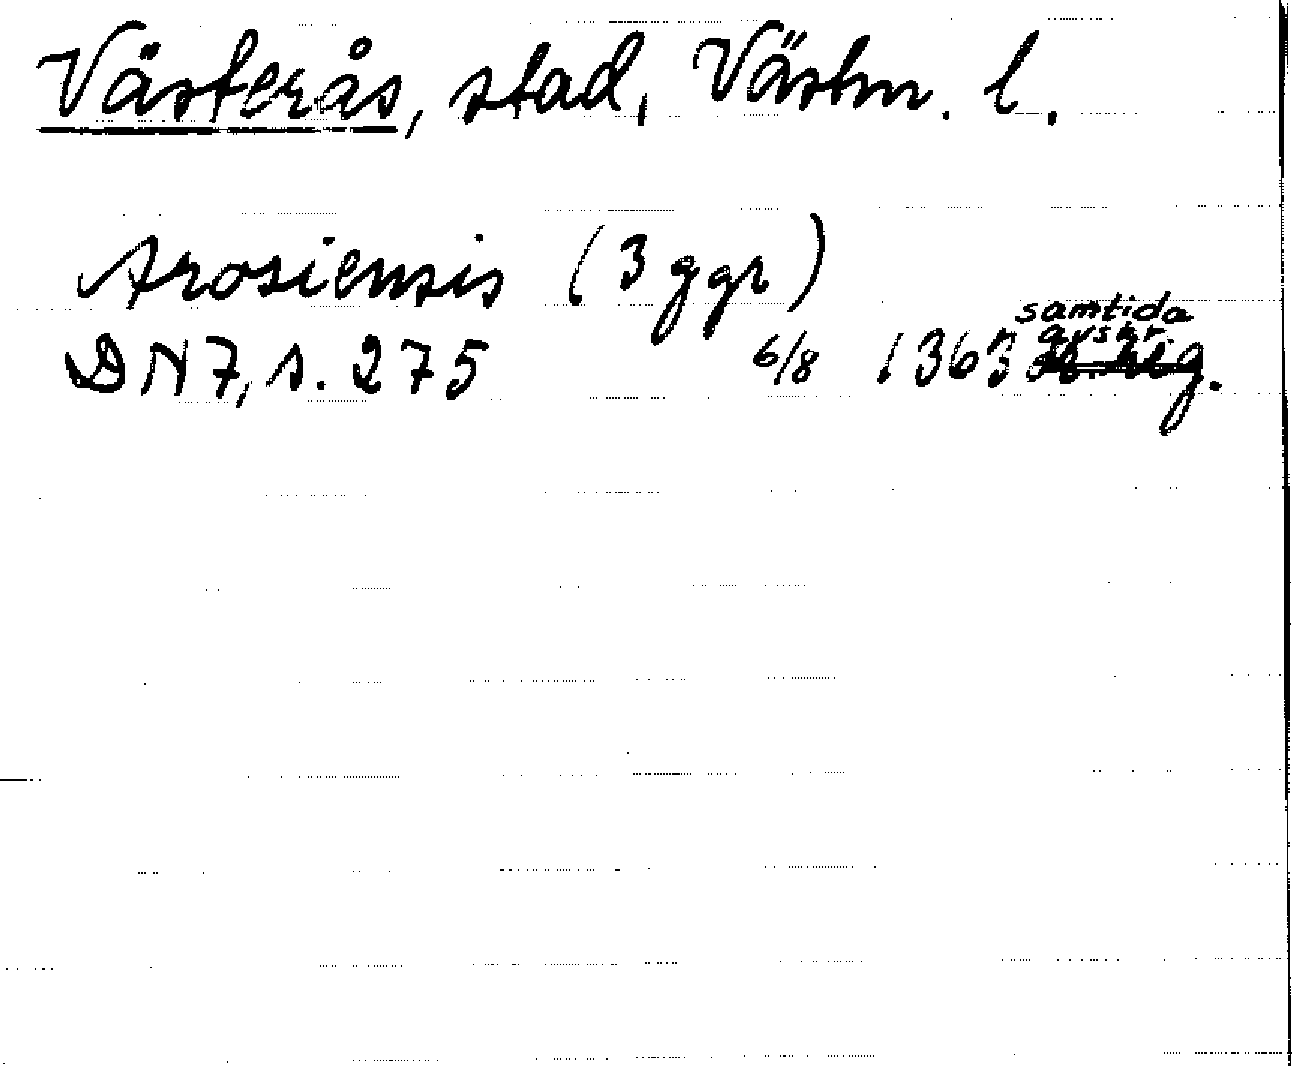 Västerås, stad, Västm. l.
Arosiensis (3 ggr)
samtida
avskr.
DN 7, s. 275 6/8 1363